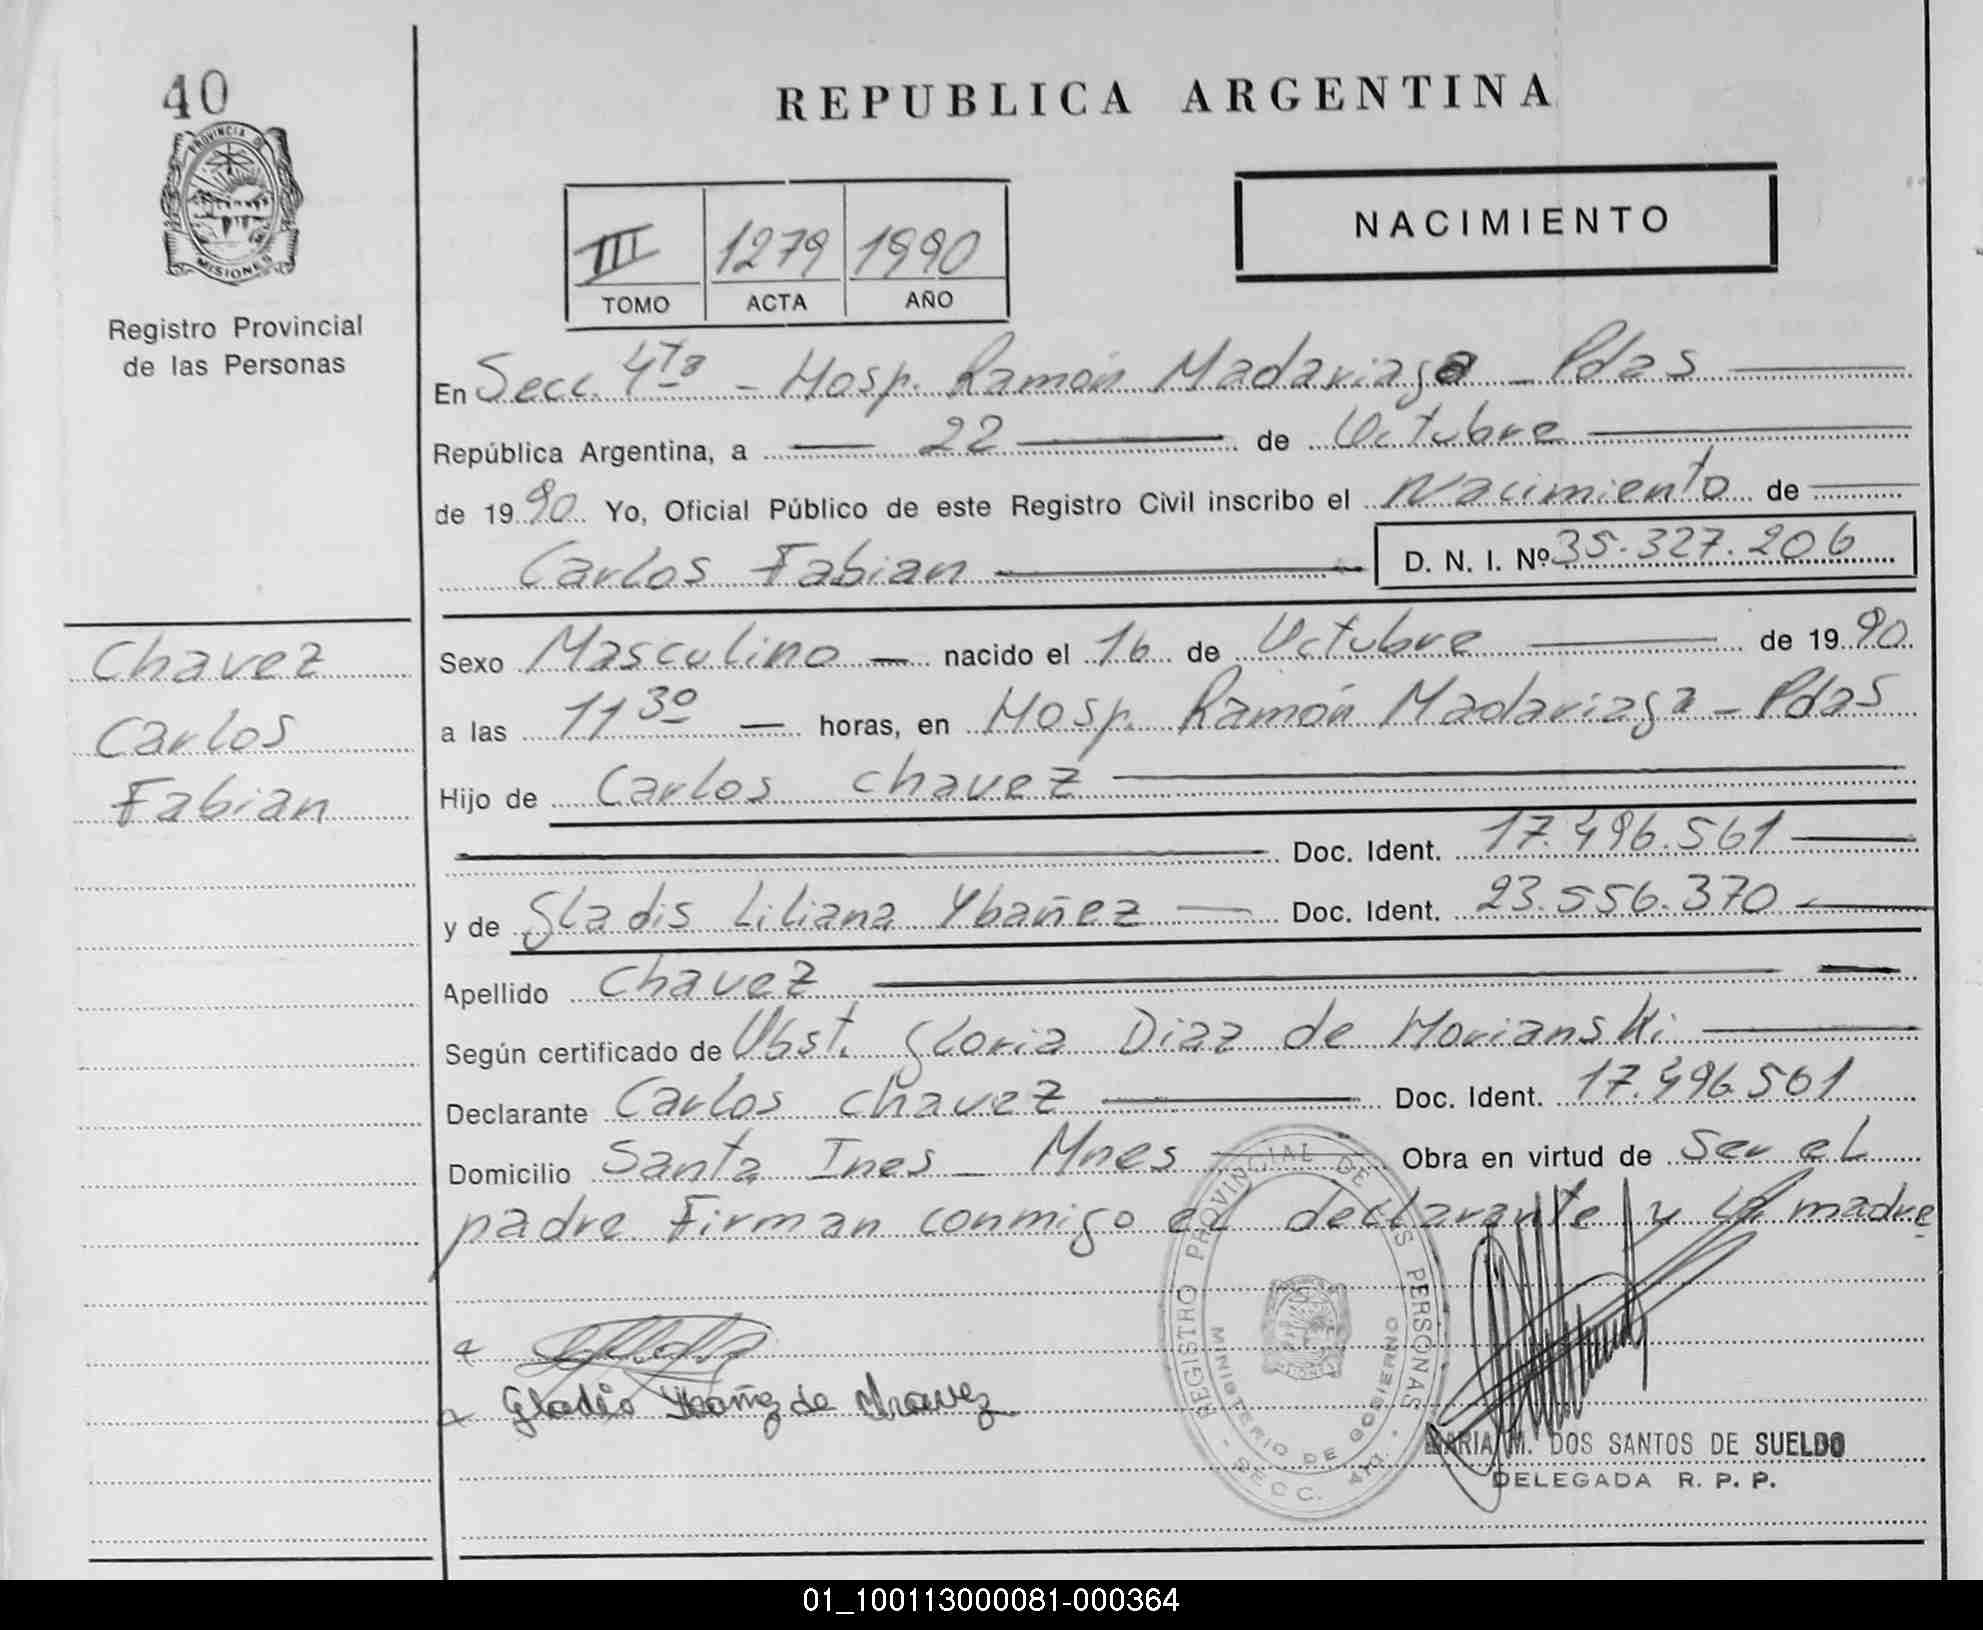 40
PROVINCIA DE
MISIONES
Registro Provincial
de las Personas
REPUBLICA ARGENTINA
III 1279 1990
TOMO ACTA AÑO
NACIMIENTO
En Secc. 4ta - Hosp. Ramón Madariaga - Pdas
República Argentina, a 22 de Octubre
de 1990 Yo, Oficial Público de este Registro Civil inscribo el Nacimiento de
Carlos Fabian D. N. I. Nº 35.327.206
Chavez
Carlos
Fabian
Sexo Masculino nacido el 16 de Octubre de 1990
a las 11 30 horas, en Hosp. Ramón Madariaga - Pdas
Hijo de Carlos Chavez
Doc. Ident. 17.496.561
y de Gladis Liliana Ybañez Doc. Ident. 23.556.370
Apellido Chavez
Según certificado de Obst. Gloria Diaz de Morianski
Declarante Carlos Chavez Doc. Ident. 17.496.561
Domicilio Santa Ines - Mnes Obra en virtud de Ser el
padre Firman conmigo el declarante y la madre
Gladis Ybañez de Chavez
REGISTRO PROVINCIAL DE LAS PERSONAS
MINISTERIO DE GOBIERNO
SECC. 4ta.
MARIA M. DOS SANTOS DE SUELDO
DELEGADA R. P. P.
01_100113000081-000364